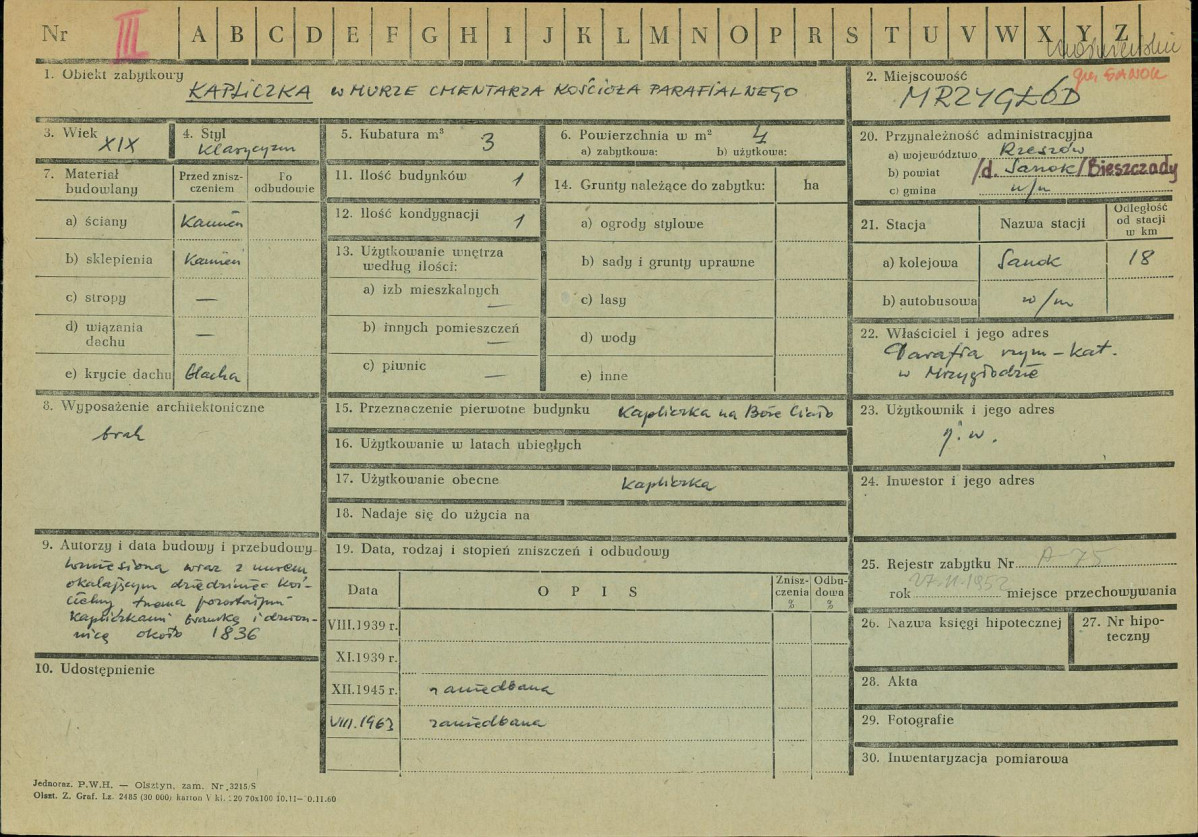 Nr III A B C D E F G H I J K L M N O P R S T U V W X Y Z
gm SANOK
1. Obiekt zabytkowy
KAPLICZKA W MURZE CMENTARZA KOŚCIOŁA PARAFIALNEGO
2. Miejscowość
MRZYGŁÓD
3. Wiek
XIX
4. Styl
Klasycyzm
5. Kubatura m³ 3
6. Powierzchnia w m² 4
a) zabytkowa: b) użytkowa:
7. Materiał budowlany
Przed zniszczeniem
Po odbudowie
a) ściany Kamień
b) sklepienia Kamień
c) stropy —
d) wiązania dachu —
e) krycie dachu blacha
8. Wyposażenie architektoniczne
brak
9. Autorzy i data budowy i przebudowy
wzniesiona wraz z murem
okalającym dziedziniec koś-
cielny trzema pozostałymi
kapliczkami bramką i dzwon-
nicą około 1836
10. Udostępnienie
11. Ilość budynków 1
12. Ilość kondygnacji 1
13. Użytkowanie wnętrza
według ilości:
a) izb mieszkalnych —
b) innych pomieszczeń —
c) piwnic —
14. Grunty należące do zabytku: ha
a) ogrody stylowe
b) sady i grunty uprawne
c) lasy
d) wody
e) inne
15. Przeznaczenie pierwotne budynku Kapliczka na Boże Ciało
16. Użytkowanie w latach ubiegłych
17. Użytkowanie obecne Kapliczka
18. Nadaje się do użycia na
19. Data, rodzaj i stopień zniszczeń i odbudowy
Data OPIS Zniszczenia % Odbudowa %
VIII.1939 r.
XI.1939 r.
XII.1945 r. zaniedbana
VIII.1963 zaniedbana
20. Przynależność administracyjna
a) województwo Rzeszów
b) powiat /d. Sanok/Bieszczady
c) gmina w/m
21. Stacja Nazwa stacji Odległość od stacji w km
a) kolejowa Sanok 18
b) autobusowa w/m
22. Właściciel i jego adres
Parafia rzym-kat.
w Mrzygłodzie
23. Użytkownik i jego adres
j.w.
24. Inwestor i jego adres
25. Rejestr zabytku Nr A-75
rok 27.11.1952 miejsce przechowywania
26. Nazwa księgi hipotecznej
27. Nr hipo-
teczny
28. Akta
29. Fotografie
30. Inwentaryzacja pomiarowa
Jednoraz. P.W.H. — Olsztyn, zam. Nr 3215/S
Olszt. Z. Graf. Lz. 2485 (30 000) karton V kl. 220 70x100 10.11—10.11.60